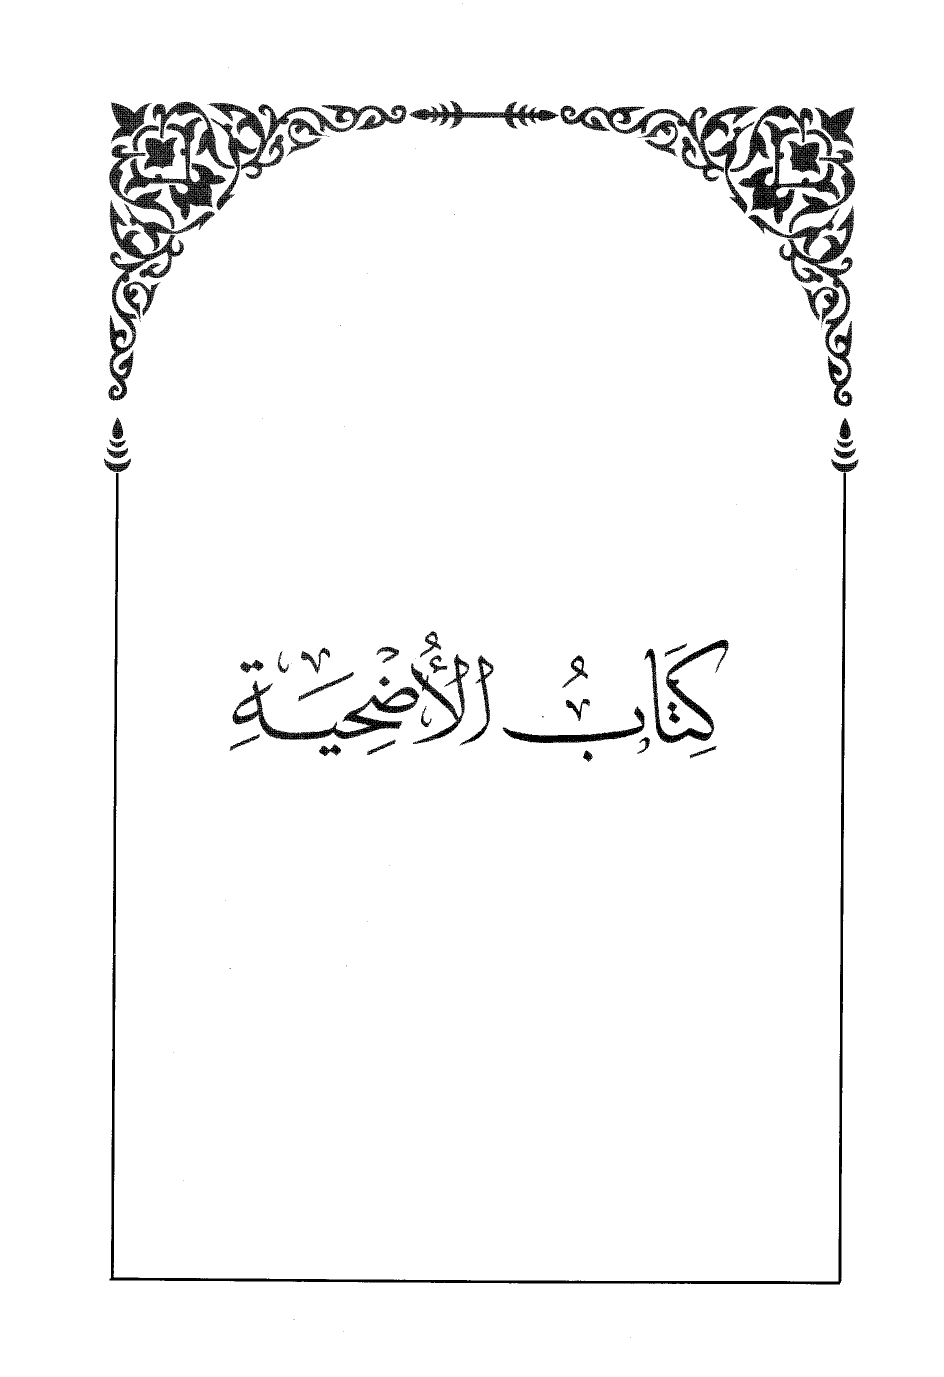 كِتَابُ الأُضْحِيَةِ